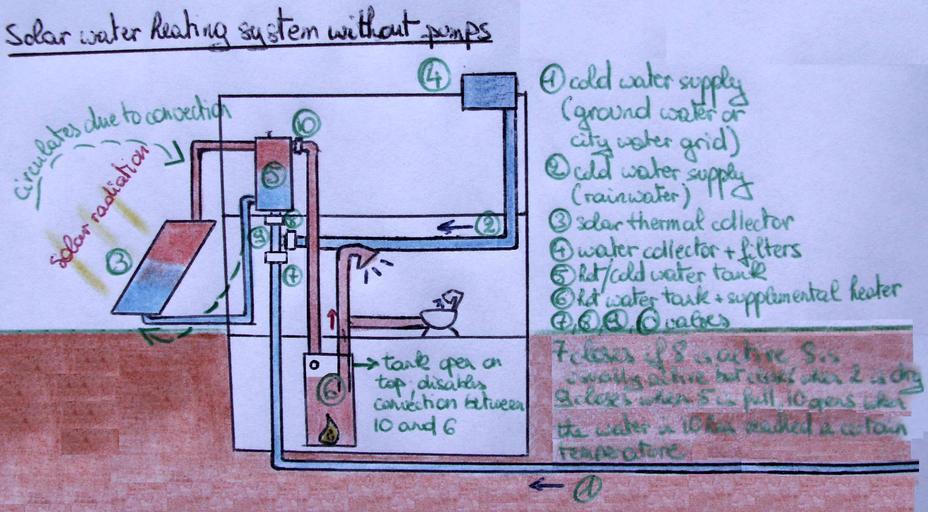 Solar water heating system without pumps
circulates due to convection
solar radiation
① cold water supply
(ground water or
city water grid)
② cold water supply
(rainwater)
③ solar thermal collector
④ water collector + filters
⑤ hot/cold water tank
⑥ hot water tank + supplemental heater
valves
7 closes if 8 is active
usually active but when 2 is dry
closes when 5 is full, 10 opens when
the water in 10 has reached a certain
temperature
④
⑩
⑤
⑧
②
⑦
③
⑥
→ tank open on
top; disables
convection between
10 and 6
①